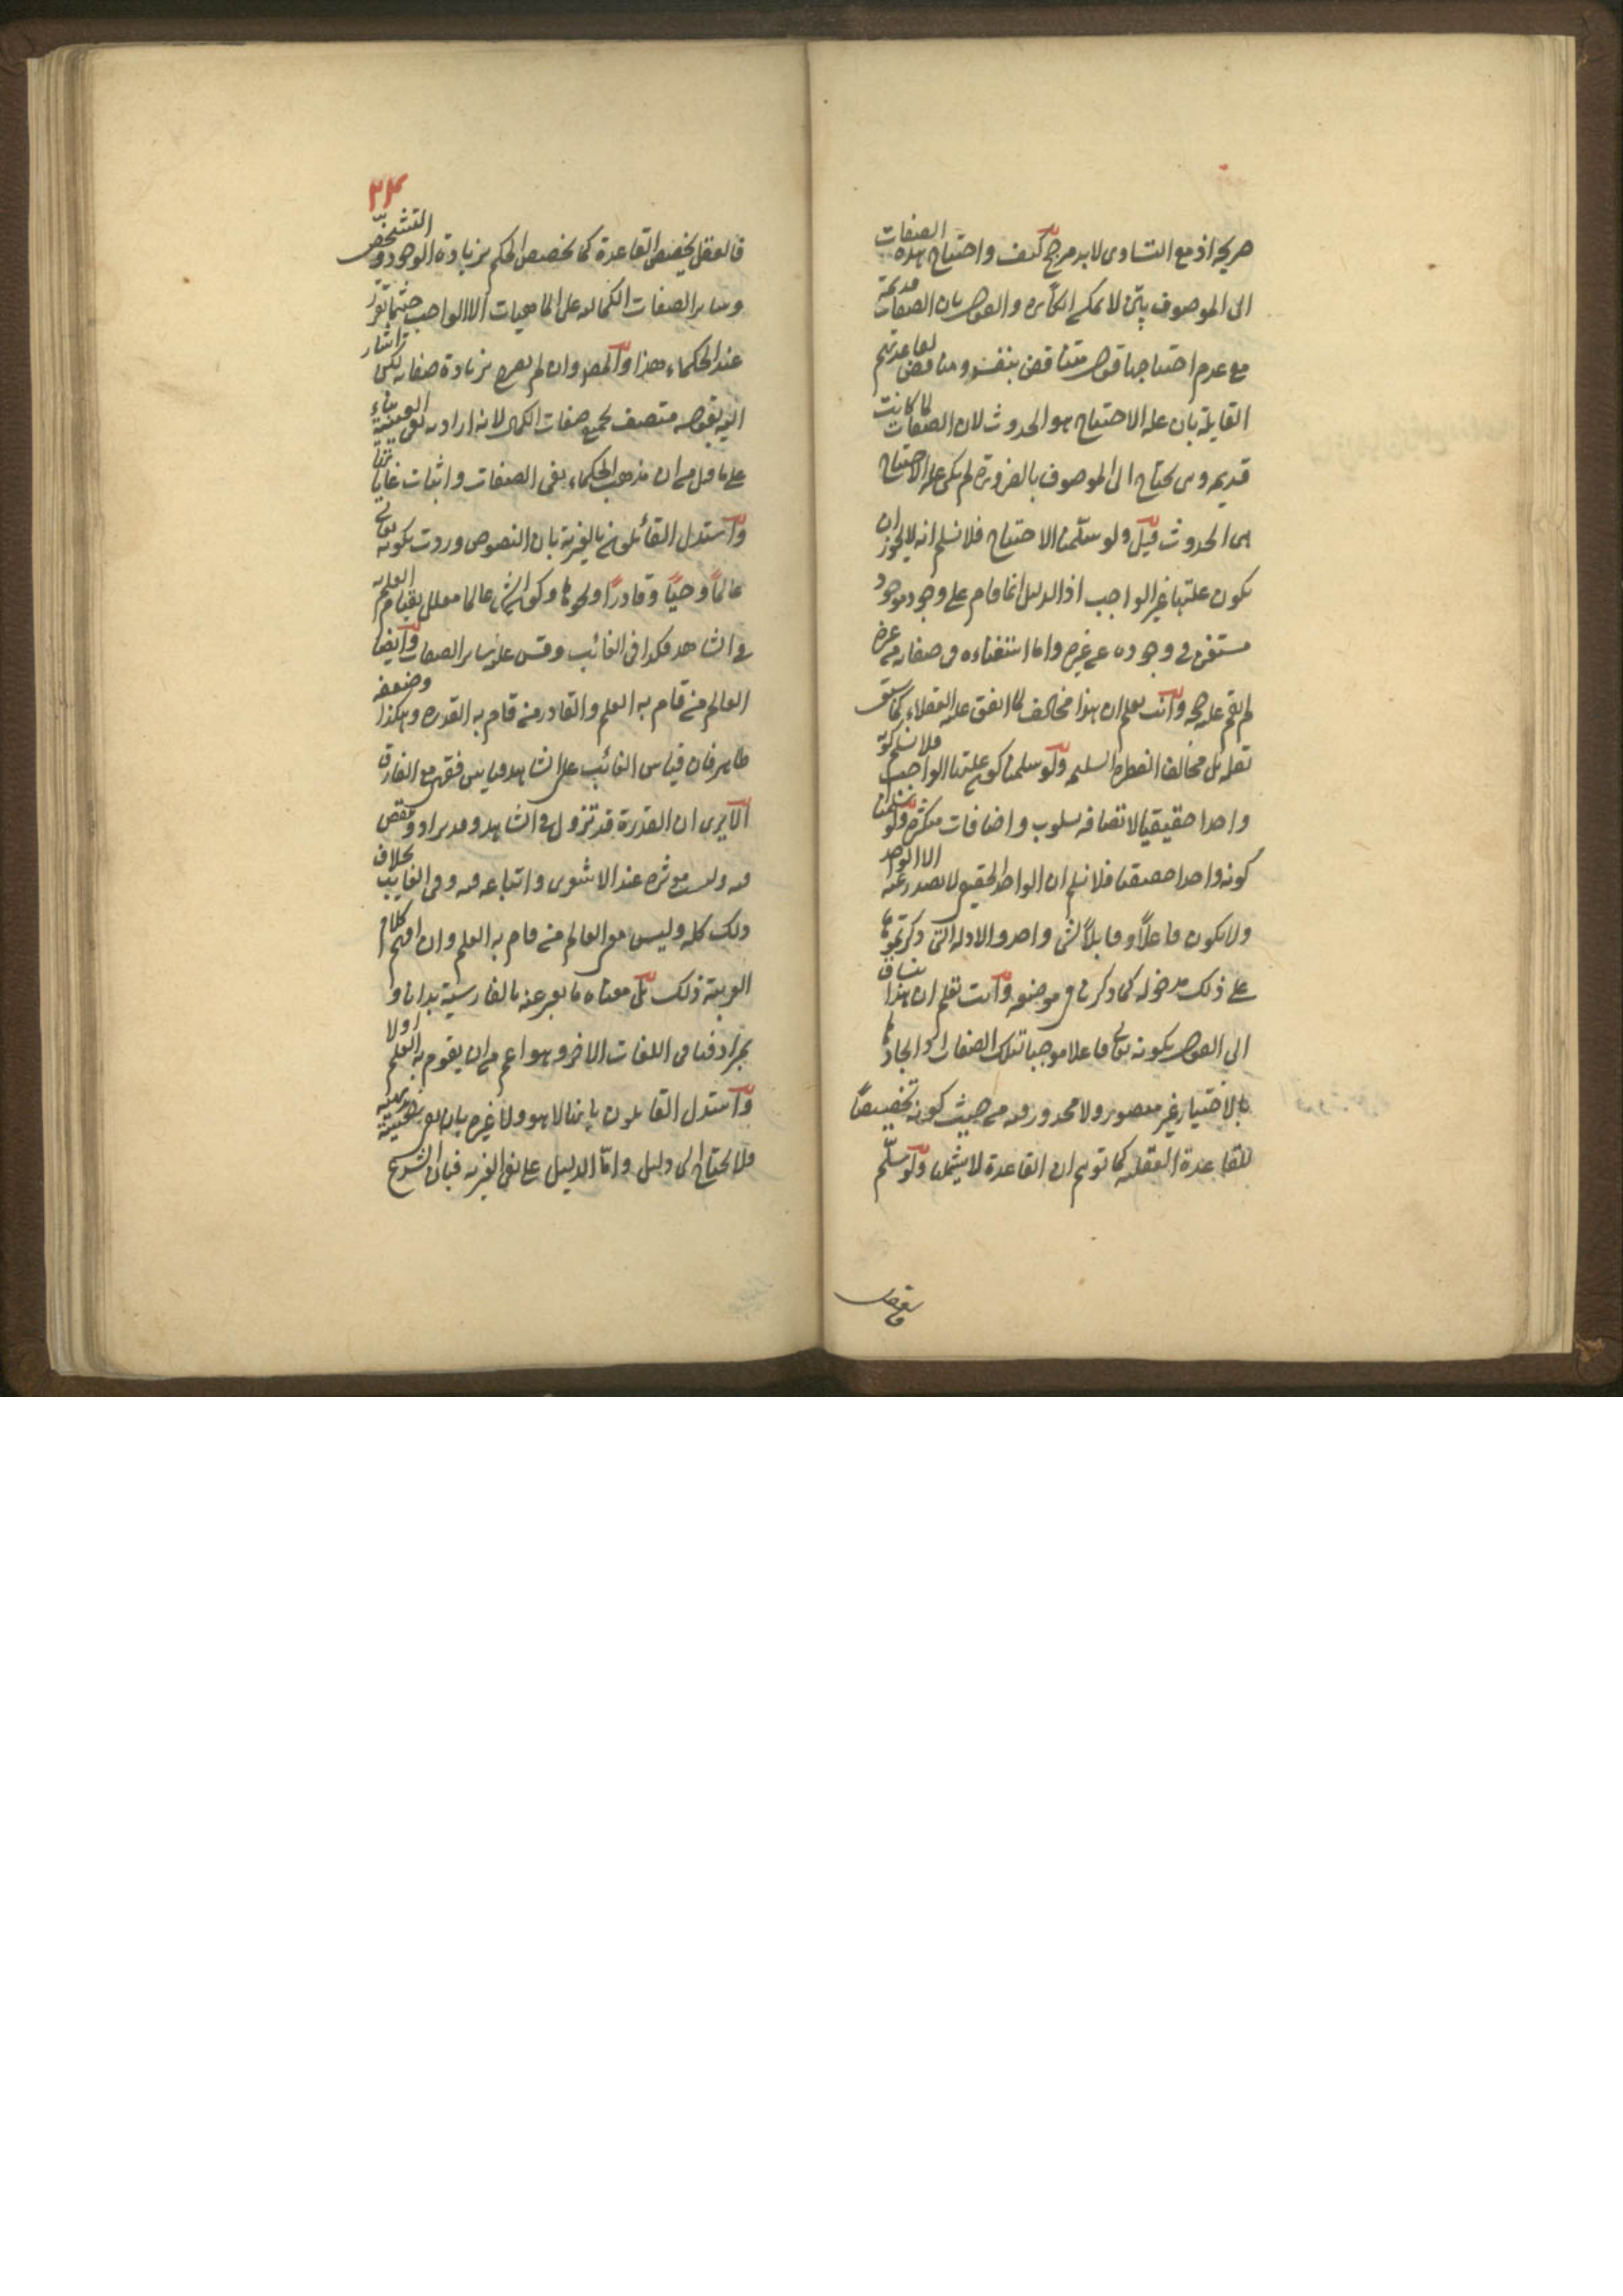 صريحة اذ مع التساوى لابد مرجح كيف واحتياج هذه الصفات
الى الموصوف بيّن لا يمكن انكاره والقول بان الصفات قديمة
مع عدم احتياجها قول متناقض بنفسه ومناقض لقاعدتهم
القايلة بان علة الاحتياج هو الحدوث لان الصفات لما كانت
قديمة وهى يحتاج الى الموصوف بالضرورة لم يكن علة الاحتياج
هى الحدوث قيل ولو سلّمنا الاحتياج فلا نسلم انه لا يجوز ان
يكون علتها غير الواجب اذ الدليل انما قام على وجود موجود
مستغن فى وجوده عن غيره واما استغناءه فى صفاته عن غيره
لم يقم عليه حجة وانت تعلم ان هذا مخالف لما اتفق عليه العقلاء كما سبق
نقله بل مخالف الفطرة السليمة ولو سلمنا كون علتها الواجب فلا نسلم كونه
واحدا حقيقيا لاتصافه بسلوب واضافات متكثرة ولو سلمنا
كونه واحدا حقيقيا فلا نسلم ان الواحد الحقيقى لا يصدر عنه الا الواحد
ولا يكون فاعلاً وقابلاً لشى واحد والادلة التى ذكرتموها
على ذلك مدخولة كما ذكر فى موضعه وانت تعلم ان هذا ينساق
الى القول بكونه تعالى فاعلا موجبا لتلك الصفات اذ ايجادها
بالاختيار غير متصور ولا محذور فيه من حيث كونه تخصيصاً
للقاعدة العقلية كما توهم ان القاعدة لا يشملها ولو سلّم
فالعقل
٢٣
فالعقل يخصص القاعدة كما يخصص الحكم بزيادة الوجود والتشخص
وساير الصفات الكمالية على الماهيات الا الواجب حيثما تقرر
عند الحكماء هذا والمص وان لم يصرح بزيادة صفاته لكن اشار
اليه بقوله متصف بجميع صفات الكمال لانه اراد به نفى العينية بناء
على ما قيل من ان مذهب الحكماء نفى الصفات واثبات غاياتها
واستدل القائلون بالغيرية بان النصوص وردت بكونه تعالى
عالماً وحيّاً وقادراً ونحوها وكون الشى عالما معلل بقيام العلم به
فى الشاهد فكذا فى الغائب وقس عليه ساير الصفات وايضا
العالم من قام به العلم والقادر من قام به القدرة وهكذا وضعفه
ظاهر فان قياس الغائب على الشاهد قياس فقهى مع الفارق
الا يرى ان القدرة قد تزول فى الشاهد وقد يزداد وينقص
فيه وليست مؤثرة عند الاشعرى واتباعه فيه وفى الغايب بخلاف
ذلك كله وليس معنى العالم من قام به العلم وان اوهم كلام
العربية ذلك بل معناه ما يعبر عنه بالفارسية بدانا و
بمرادفها فى اللغات الاخر وهو اعم من ان يقوم به العلم اولا
واستدل القايلون بانها لا هو ولا غيره بان نفى العينية بديهية
فلا يحتاج الى دليل وامّا الدليل على نفى الغيرية فبان الشرع